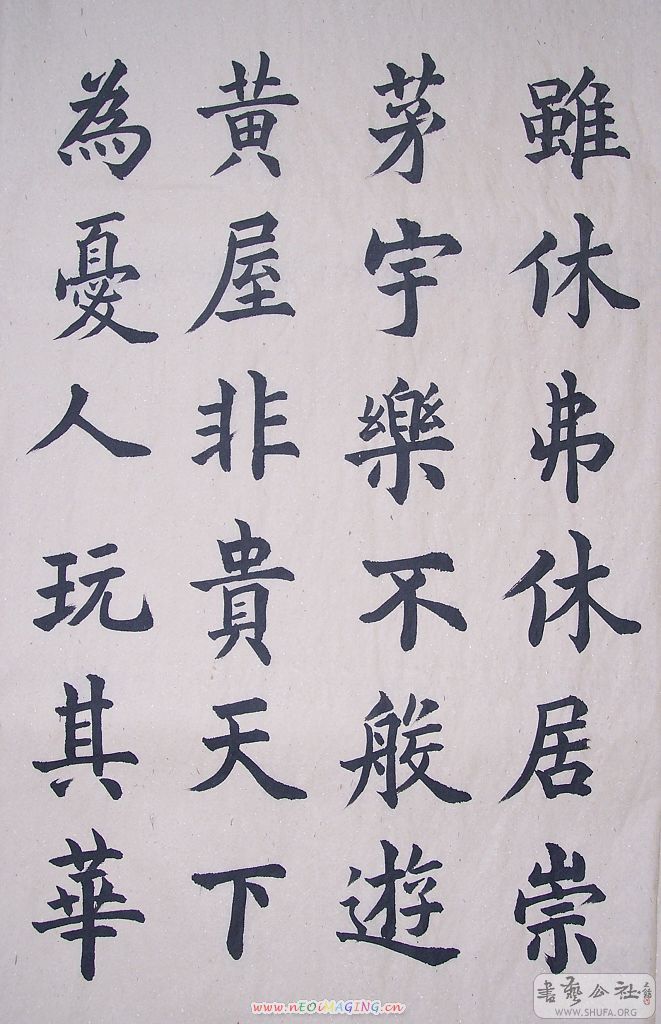 雖休弗休居崇
茅宇樂不般遊
黄屋非貴天下
為憂人玩其華
www.nEOiMAGiNG.cn
書藝公社
WWW.SHUFA.ORG